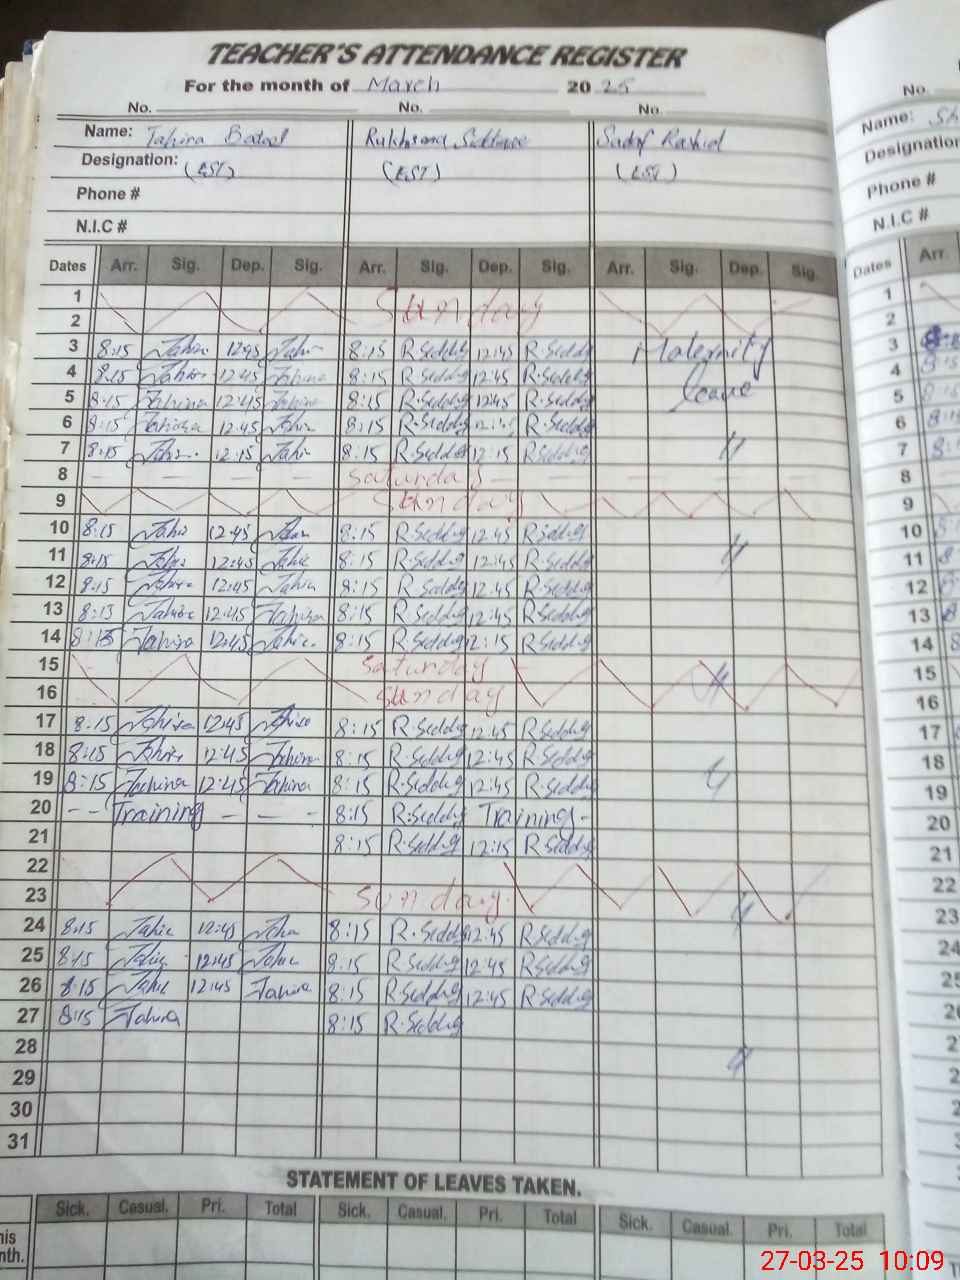 TEACHER'S ATTENDANCE REGISTER
For the month of March 20 25
No. No. No.
Name: Tahira Batool Rukhsana Siddique Sadaf Rashid
Designation: (EST) (EST) (EST)
Phone #
N.I.C #
Dates Arr. Sig. Dep. Sig. Arr. Sig. Dep. Sig. Arr. Sig. Dep. Sig.
1 Sunday
2
3 8:15 Tahira 12:45 Tahira 8:15 R.Siddiq 12:45 R.Siddiq Maternity
4 8:15 Tahira 12:45 Tahira 8:15 R.Siddiq 12:45 R.Siddiq
5 8:15 Tahira 12:45 Tahira 8:15 R.Siddiq 12:45 R.Siddiq leave
6 8:15 Tahira 12:45 Tahira 8:15 R.Siddiq R.Siddiq
7 8:15 Tahira 12:15 Tahira 8:15 R.Siddiq 12:15 R.Siddiq 〃
8 Saturday
9 Sunday
10 8:15 Tahira 12:45 8:15 R.Siddiq 12:45 R.Siddiq
11 8:15 Tahira 12:45 Tahira 8:15 R.Siddiq 12:45 R.Siddiq 〃
12 8:15 Tahira 12:45 Tahira 8:15 R.Siddiq 12:45 R.Siddiq
13 8:15 Tahira 12:45 Tahira 8:15 R.Siddiq 12:45 R.Siddiq
14 8:15 Tahira 12:45 Tahira 8:15 R.Siddiq 12:15 R.Siddiq
15 Saturday
16 Sunday 〃
17 8:15 Tahira 12:45 Tahira 8:15 R.Siddiq 12:45 R.Siddiq
18 8:15 Tahira 12:45 Tahira 8:15 R.Siddiq 12:45 R.Siddiq
19 8:15 Tahira 12:45 Tahira 8:15 R.Siddiq 12:45 R.Siddiq 〃
20 -- Training - - - 8:15 R.Siddiq Training -
21 8:15 R.Siddiq 12:15 R.Siddiq
22
23 Sunday 〃
24 8:15 Tahira 12:45 Tahira 8:15 R.Siddiq 12:45 R.Siddiq
25 8:15 Tahira 12:45 Tahira 8:15 R.Siddiq 12:45 R.Siddiq
26 8:15 Tahira 12:45 Tahira 8:15 R.Siddiq 12:45 R.Siddiq
27 8:15 Tahira 8:15 R.Siddiq
28 〃
29
30
31
STATEMENT OF LEAVES TAKEN.
Sick. Casual. Pri. Total Sick. Casual. Pri. Total Sick. Casual. Pri. Total
No.
Name: Sh
Designation
Phone #
N.I.C #
Dates Arr.
1
2
3
4
5
6
7
8
9
10
11
12
13
14
15
16
17
18
19
20
21
22
23
24
27-03-25 10:09